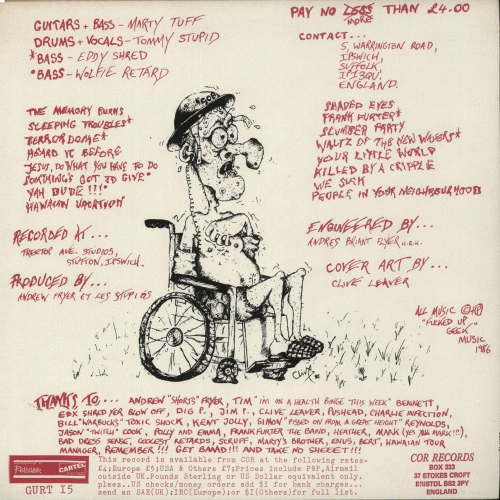 GUITARS + BASS - MARTY TUFF
DRUMS + VOCALS - TOMMY STUPID
*BASS - EDDY SHRED
•BASS - WOLFIE RETARD
PAY NO LESS THAN £4.00
MORE
CONTACT...
5, WARRINGTON ROAD,
IPSWICH,
SUFFOLK,
IP1 3QU,
ENGLAND.
THE MEMORY BURNS
SLEEPING TROUBLES*
TERRORDOME*
HEARD IT BEFORE
JESUS, DO WHAT YOU HAVE TO DO
SOMETHING'S GOT TO GIVE•
YAH DUDE!!!•
HAWAIIAN VACATION
SHADED EYES
FRANK FURTER*
SLUMBER PARTY
WALTZ OF THE NEW WAVERS*
YOUR LITTLE WORLD
KILLED BY A CRIPPLE
WE SUCK
PEOPLE IN YOUR NEIGHBOURHOOD
RECORDED AT...
TREETOP AVE. STUDIOS,
STUTTON, IPSWICH.
PRODUCED BY...
ANDREW FRYER ET LES STUPIDS
ENGINEERED BY...
ANDRES BRIANT FLYER H.R.H.
COVER ART BY...
CLIVE LEAVER
COR
Clive
ALL MUSIC ©+℗
"FUCKED UP
GEEK
MUSIC
1986
THANKS TO... ANDREW "SHORTS" FRYER, TIM "I'M ON A HEALTH BINGE THIS WEEK" BENNETT,
EDX SHRED YER BLOW OFF, DIG P., JIM P., CLIVE LEAVER, PUSHEAD, CHARLIE INFECTION,
BILL "WARBUCKS" TOXIC SHOCK, KENT JOLLY, SIMON "PISSED ON FROM A GREAT HEIGHT" REYNOLDS,
JASON "TWITCH" COOK, POLLY AND EMMA, FRANKFURTER THE BAND, HEATHER, MARK (YES ALL MARK!!!),
BAD DRESS SENSE, COOLEST RETARDS, SCRUFF, MARTY'S BROTHER, ENUS, BERT, HAWAIIAN TOUR
MANAGER, REMEMBER!!! GET BAAAD!!! AND TAKE NO SHEEET!!!
This record is available from COR at the following rates.
£4;Europe £5;USA & Others £7;Prices include P&P,Airmail
outside UK.Pounds Sterling or US Dollar equivalent only.
pleas.US checks/money orders add $1 for bank charges...
send an SAE(UK);IRC(Europe);or $1(Others)for full list.
Revolver
CARTEL
GURT 15
COR RECORDS
BOX 333
37 STOKES CROFT
BRISTOL BS2 3PY
ENGLAND